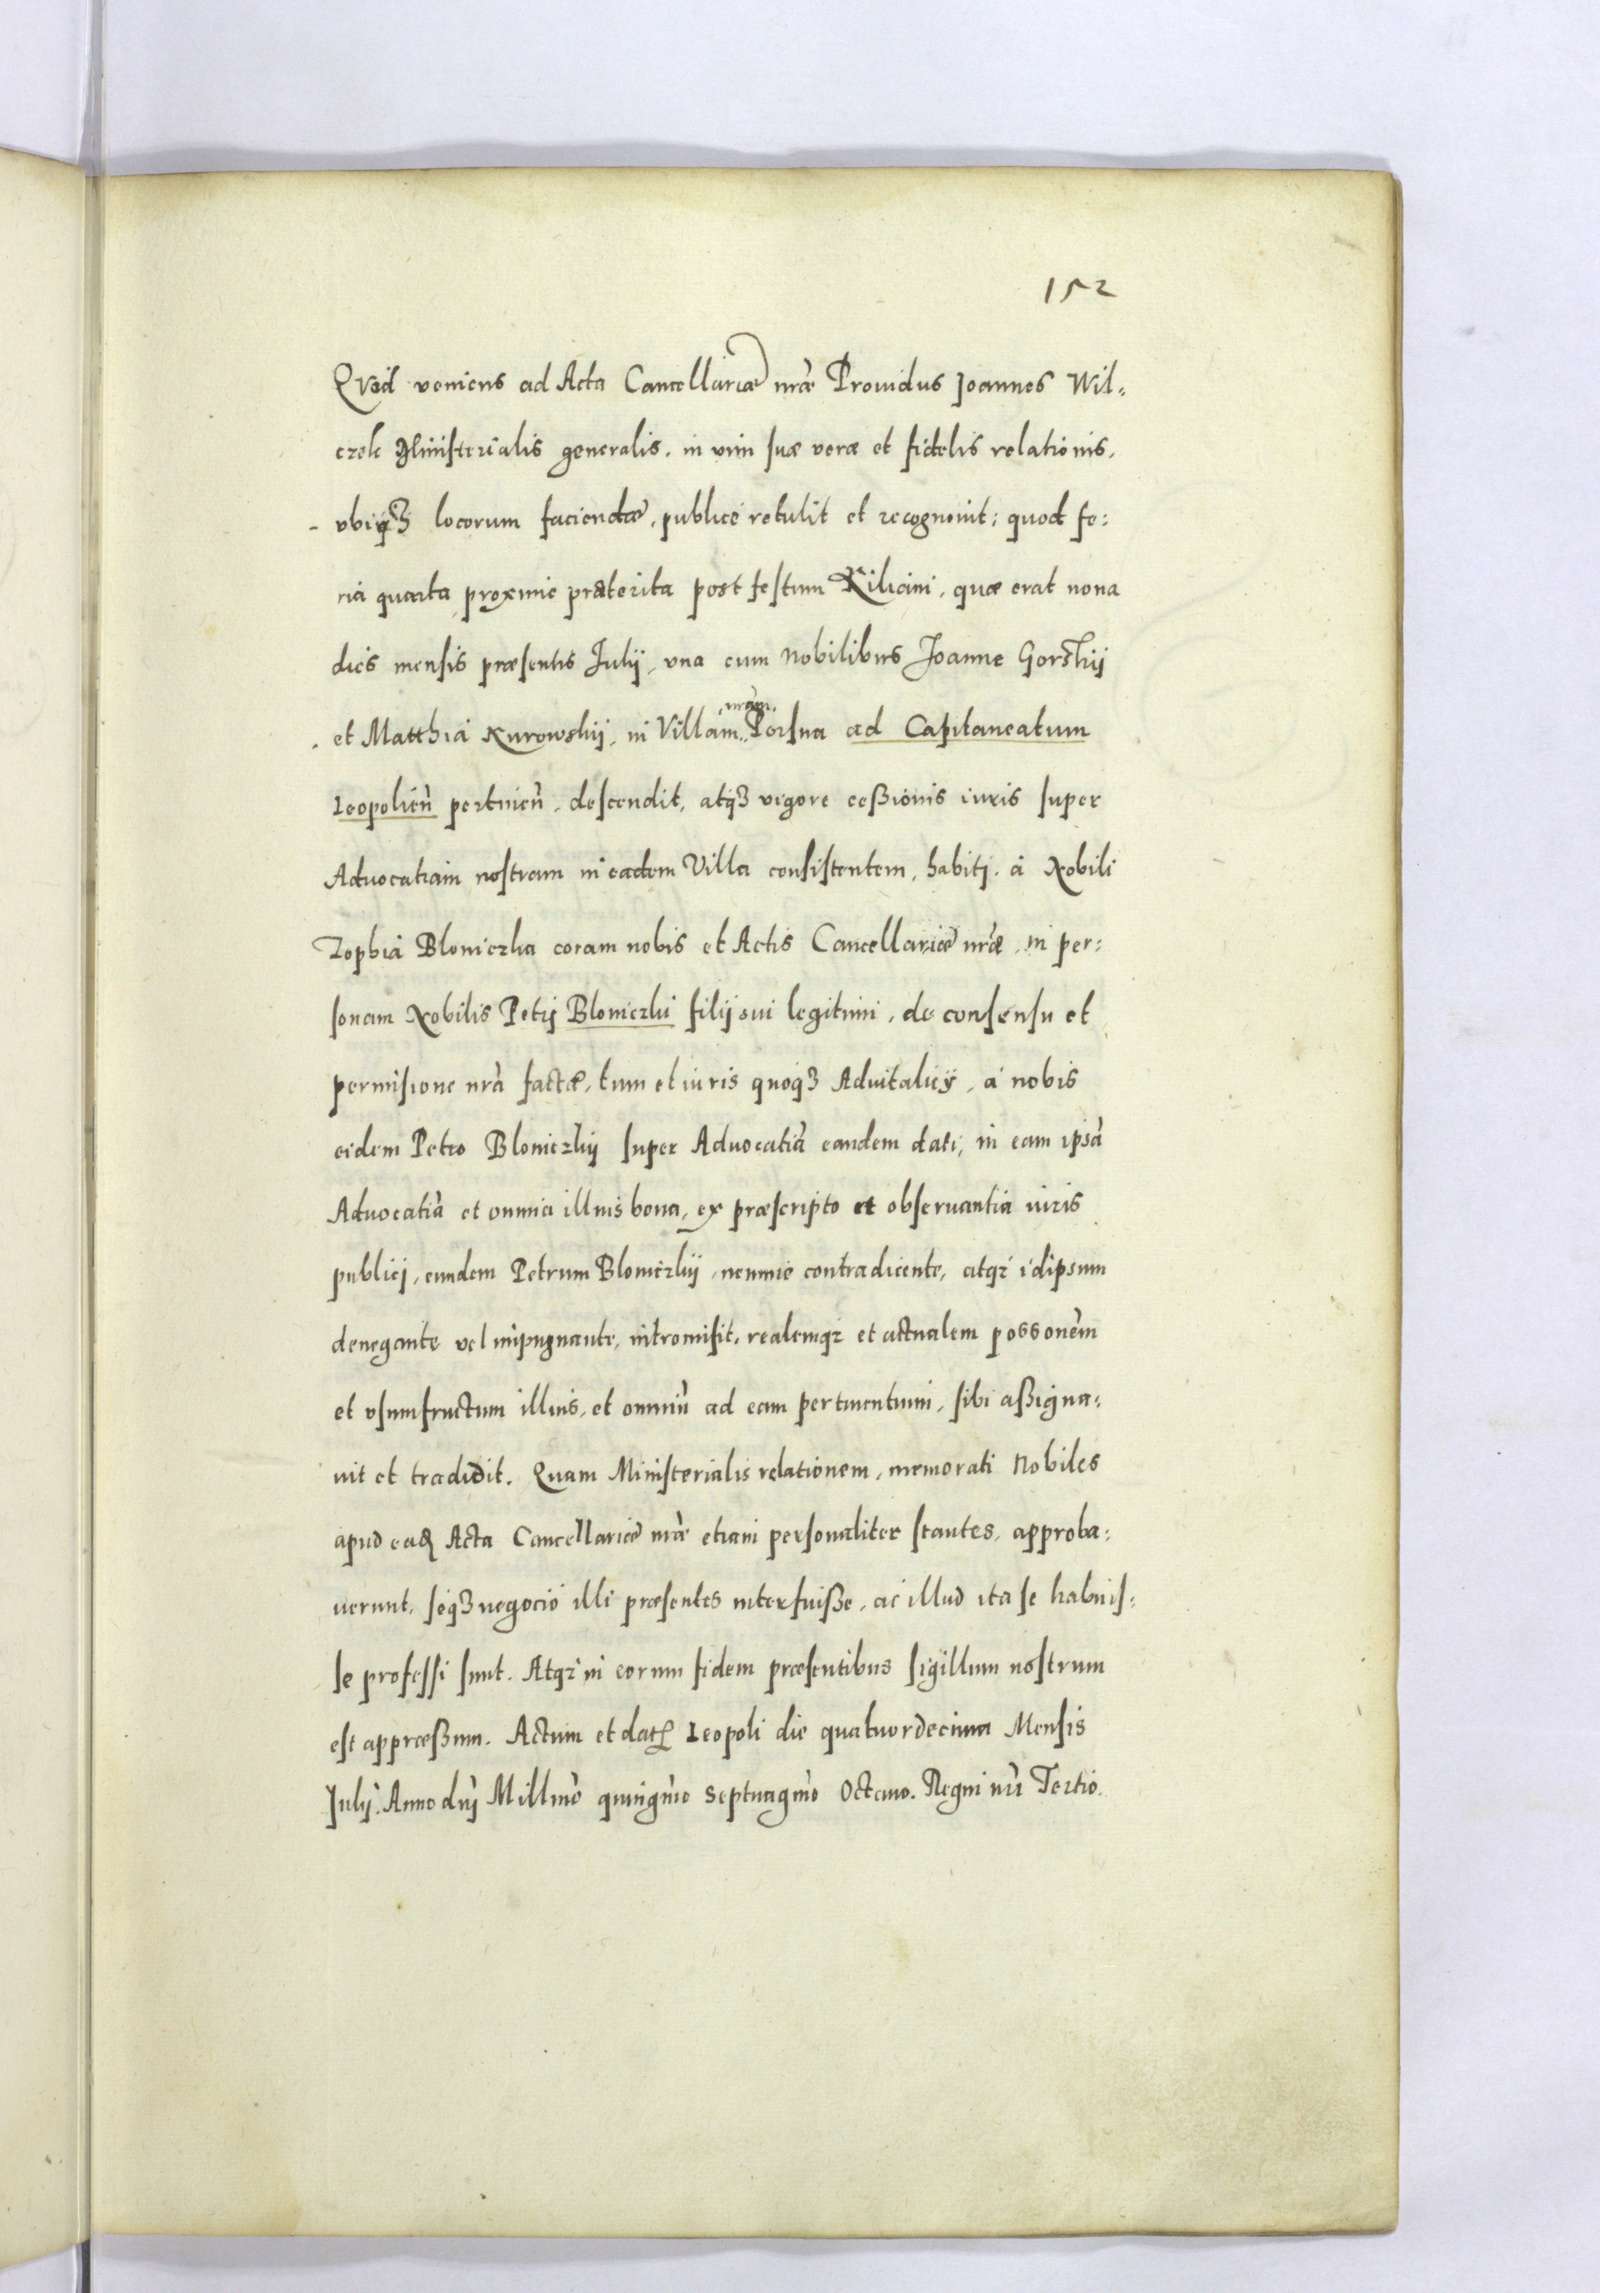 152
QVod veniens ad Acta Cancellariæ nrãe Prouidus Joannes Wil-
czek Ministerialis generalis, in vim suæ veræ et fidelis relationis,
vbiq3 locorum faciendæ, publicè retulit et recognouit: quod fe:
ria quarta proximè præterita post festum Kiliani, quæ erat nona
dies mensis præsentis Julij, vna cum Nobilibus Joanne Gorskij
nrãm
et Matthia Kurowskij, in Villam Porsna ad Capitaneatum
Leopolien̄ pertinen̄, descendit, atq3 vigore ceßionis iuris super
Aduocatiam nostram in eadem Villa consistentem, habiti, à Nobili
Zophia Bloniczka coram nobis et Actis Cancellariæ nrãe, in per:
sonam Nobilis Petri Bloniczki filij sui legitimi, de consensu et
permisione nrã factæ, tum et iuris quoq3 Aduitalicij, à nobis
eidem Petro Bloniczkij super Aduocatiã eandem dati, in eam ipsã
Aduocatiã et omnia illius bona, ex præscripto et obseruantia iuris
publici, eundem Petrum Bloniczkij, nemine contradicente, atqz idipsum
denegante vel impugnante, intromisit, realemqz et actualem possonẽm
et vsumfructum illius, et omniũ ad eam pertinentium, sibi aßigna:
uit et tradidit. Quam Ministerialis relationem, memorati Nobiles
apud eadẽ Acta Cancellariæ nrãe etiam personaliter stantes, approba:
uerunt, seq3 negocio illi præsentes interfuiße, ac illud ita se habuis:
se professi sunt. Atqz in eorum fidem præsentibus sigillum nostrum
est appræßum. Actum et dat̃ Leopoli die quatuordecima Mensis
Julij. Anno dnĩ Millmõ quingmõ septuagmõ Octauo. Regni nrĩ Tertio.